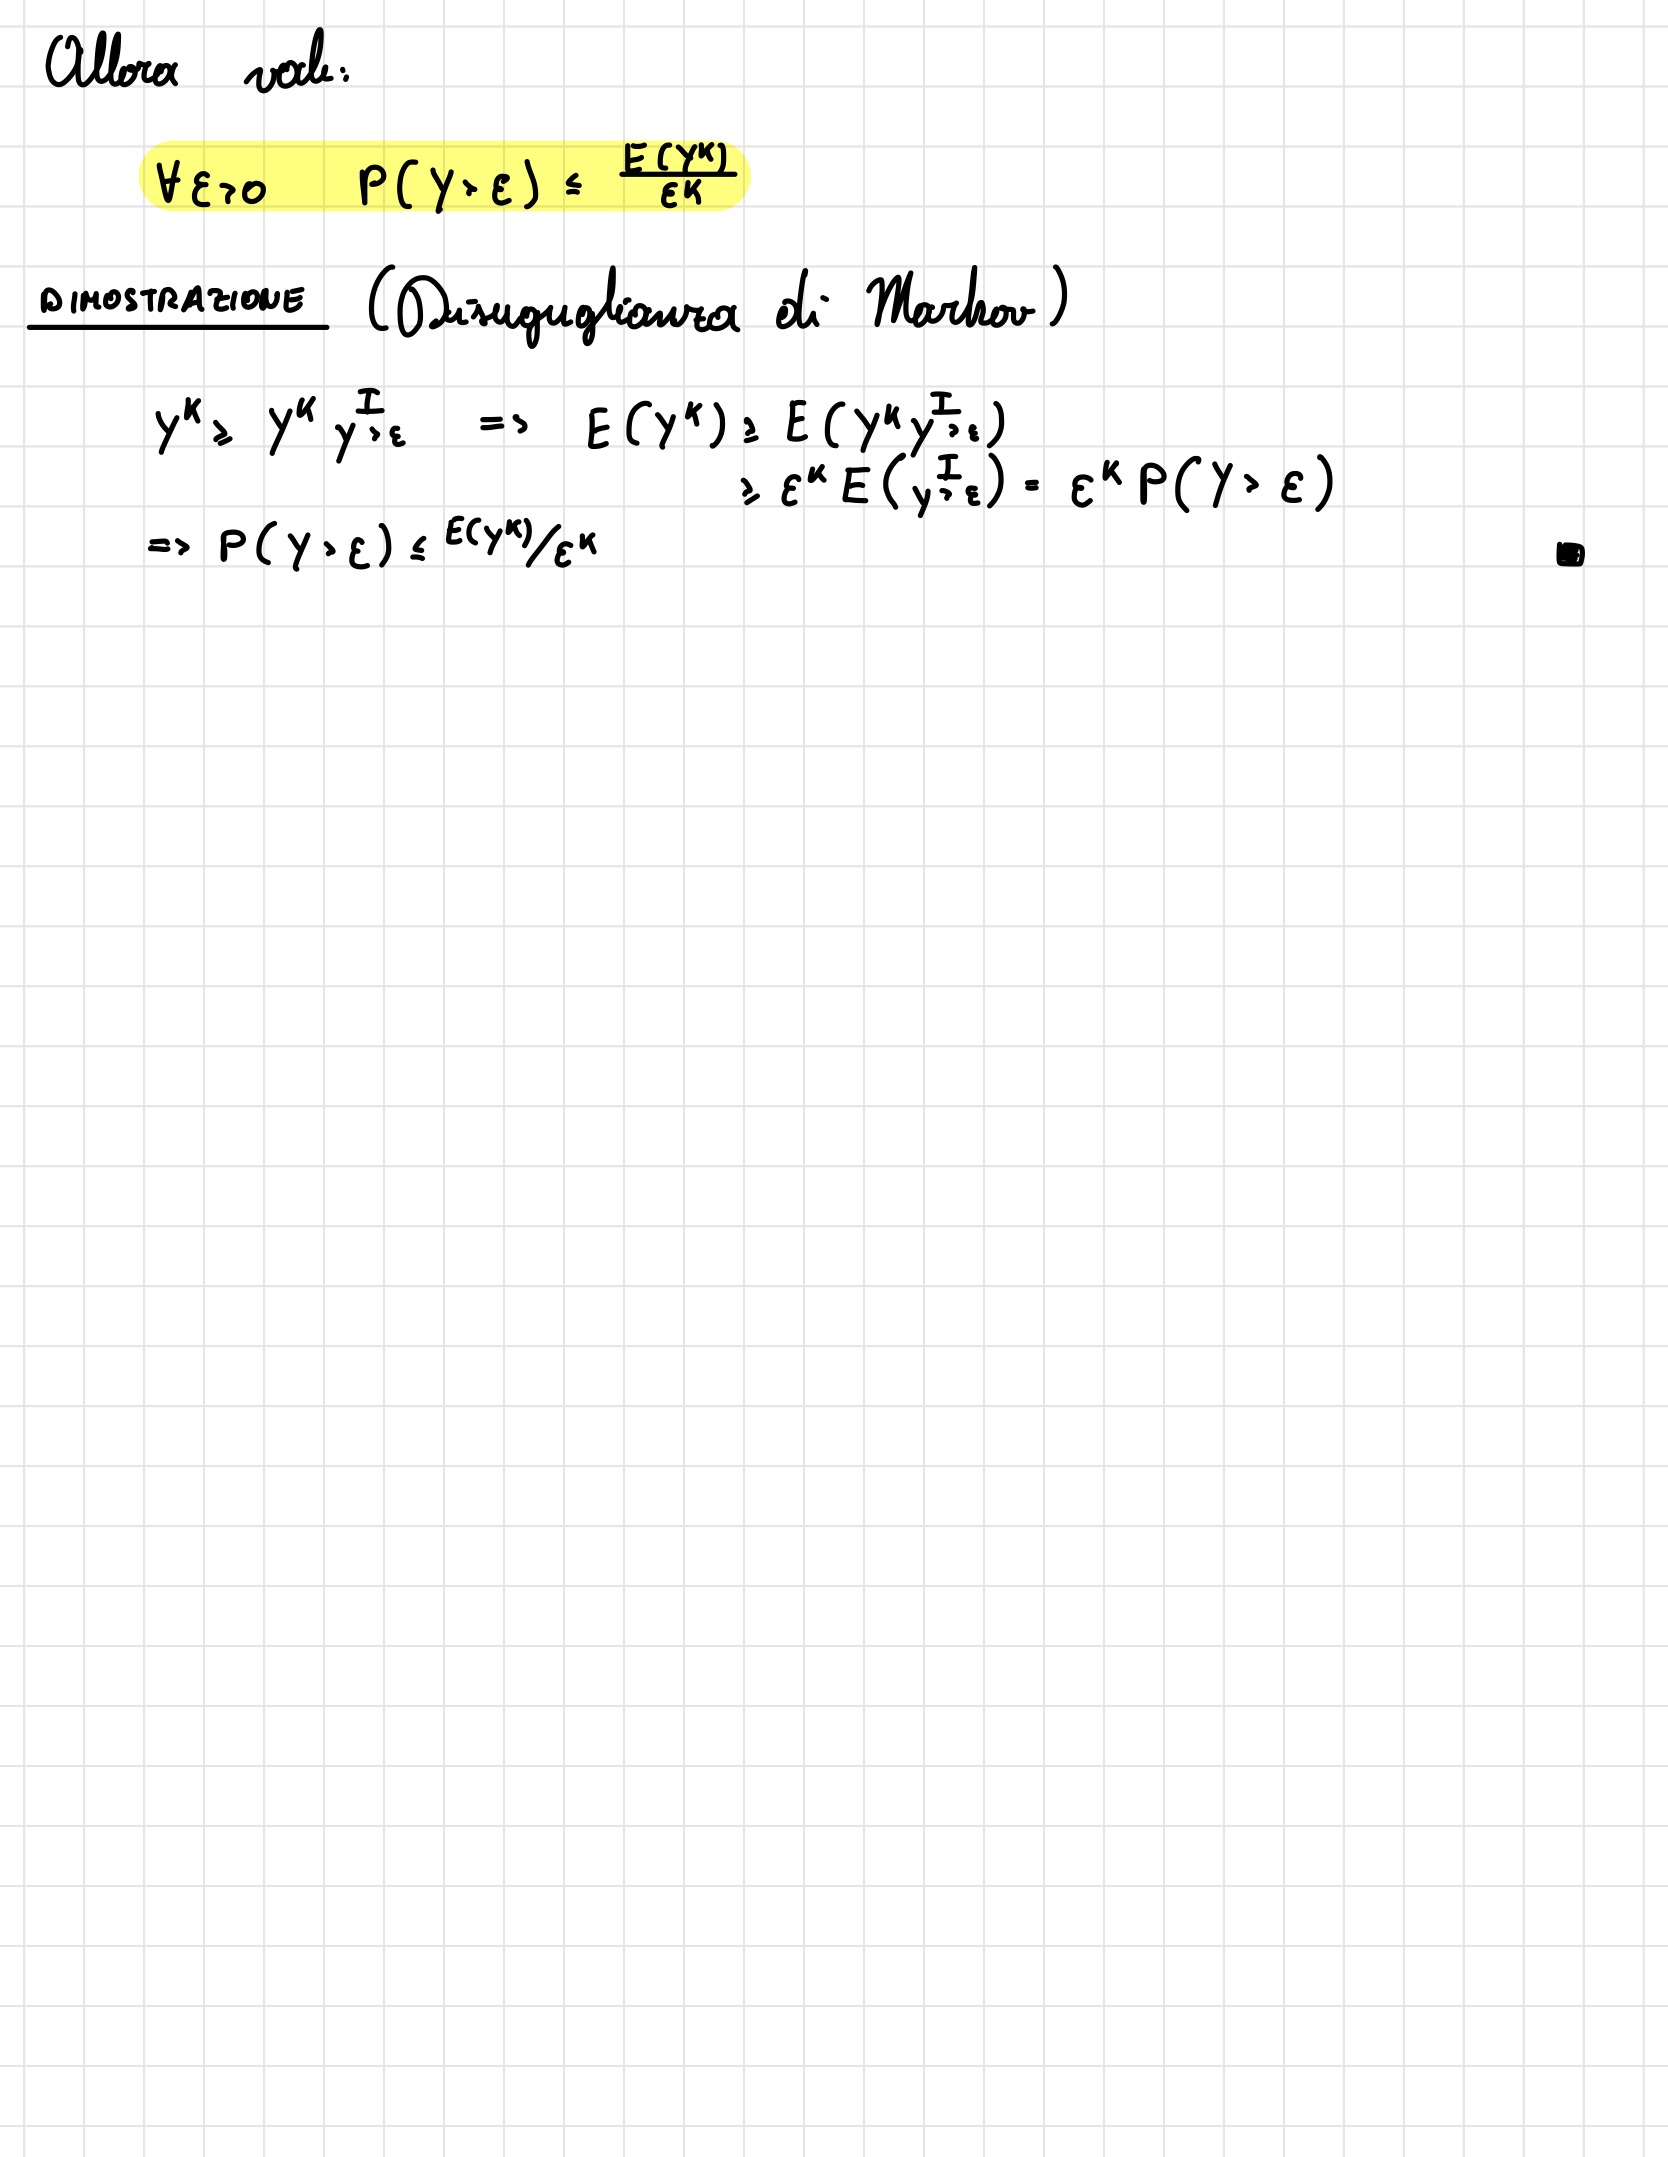 Allora vale:
∀ε>0 P(Y>ε) ≤ E(Y^K)/ε^K
DIMOSTRAZIONE (Disuguglianza di Markov)
Y^K ≥ Y^K I_{Y>ε} => E(Y^K) ≥ E(Y^K I_{Y>ε})
≥ ε^K E(I_{Y>ε}) = ε^K P(Y>ε)
=> P(Y>ε) ≤ E(Y^K)/ε^K